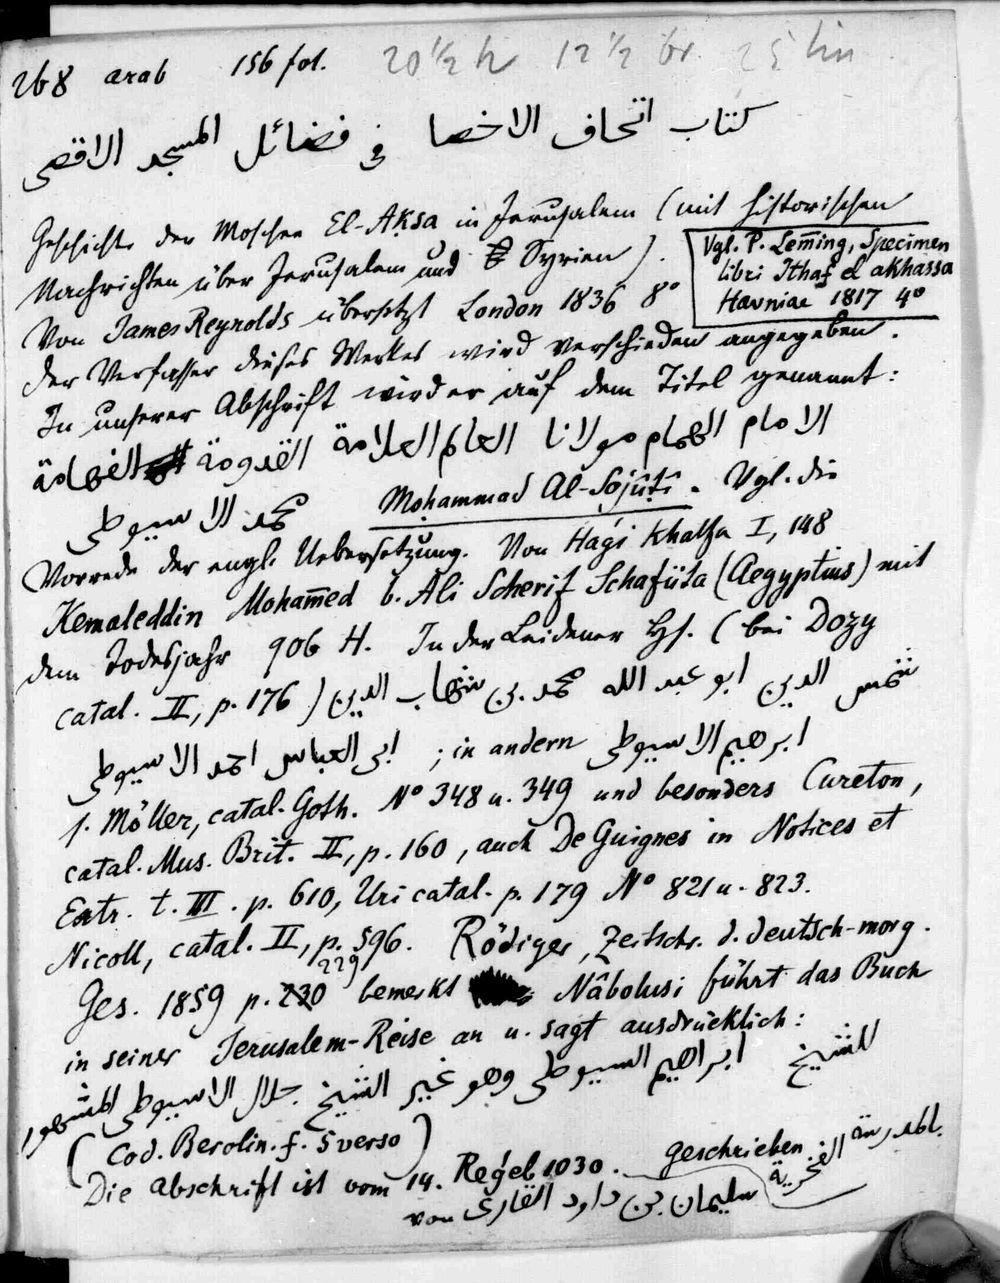 268 arab 156 fol. 20 1/2 h 12 1/2 br. 25 lin
كتاب اتحاف الاخصا في فضائل المسجد الاقصى
Geschichte der Moschee El-Aksa in Jerusalem (mit historischen
Nachrichten über Jerusalem und Syrien).
Vgl. P. Lem̄ing, Specimen
libri Ithaf el akhassa
Havniae 1817 4°
Von James Reynolds übersetzt London 1836 8°
Der Verfasser dieses Werkes wird verschieden angegeben.
In unserer Abschrift wird er auf dem Titel genannt:
الامام الهمام مولانا العالم العلامة القدومة الفهامة
محمد الاسيوطى Mohammad Al-Sojûti. Vgl. die
Vorrede der engl. Uebersetzung. Von Hagi Khalfa I, 148
Kemaleddin Moham̄ed b. Ali Scherif Schafiita (Aegyptius) mit
dem Todesjahr 906 H. In der Leidener Hs. (bei Dozy
catal. II, p. 176) شمس الدين ابو عبد الله محمد بن شهاب الدين
ابى العباس احمد الاسيوطى ; in andern ابرهيم الاسيوطى
s. Möller, catal. Goth. N° 348 u. 349 und besonders Cureton,
catal. Mus. Brit. II, p. 160, auch De Guignes in Notices et
Extr. t. III. p. 610, Uri catal. p. 179 N° 821 u. 823.
Nicoll, catal. II, p. 596. Rödiger, Zeitschr. d. deutsch-morg.
Ges. 1859 p. 229 bemerkt Nâbolusi führt das Buch
in seiner Jerusalem-Reise an u. sagt ausdrücklich:
للشيخ ابراهيم السيوطى وهو غير الشيخ جلال الاسيوطى المشهور
(Cod. Berolin. f. 5 verso)
Die Abschrift ist vom 14. Regeb 1030. geschrieben
von سليمان بن داود القارى بالمدرسة الفخرية